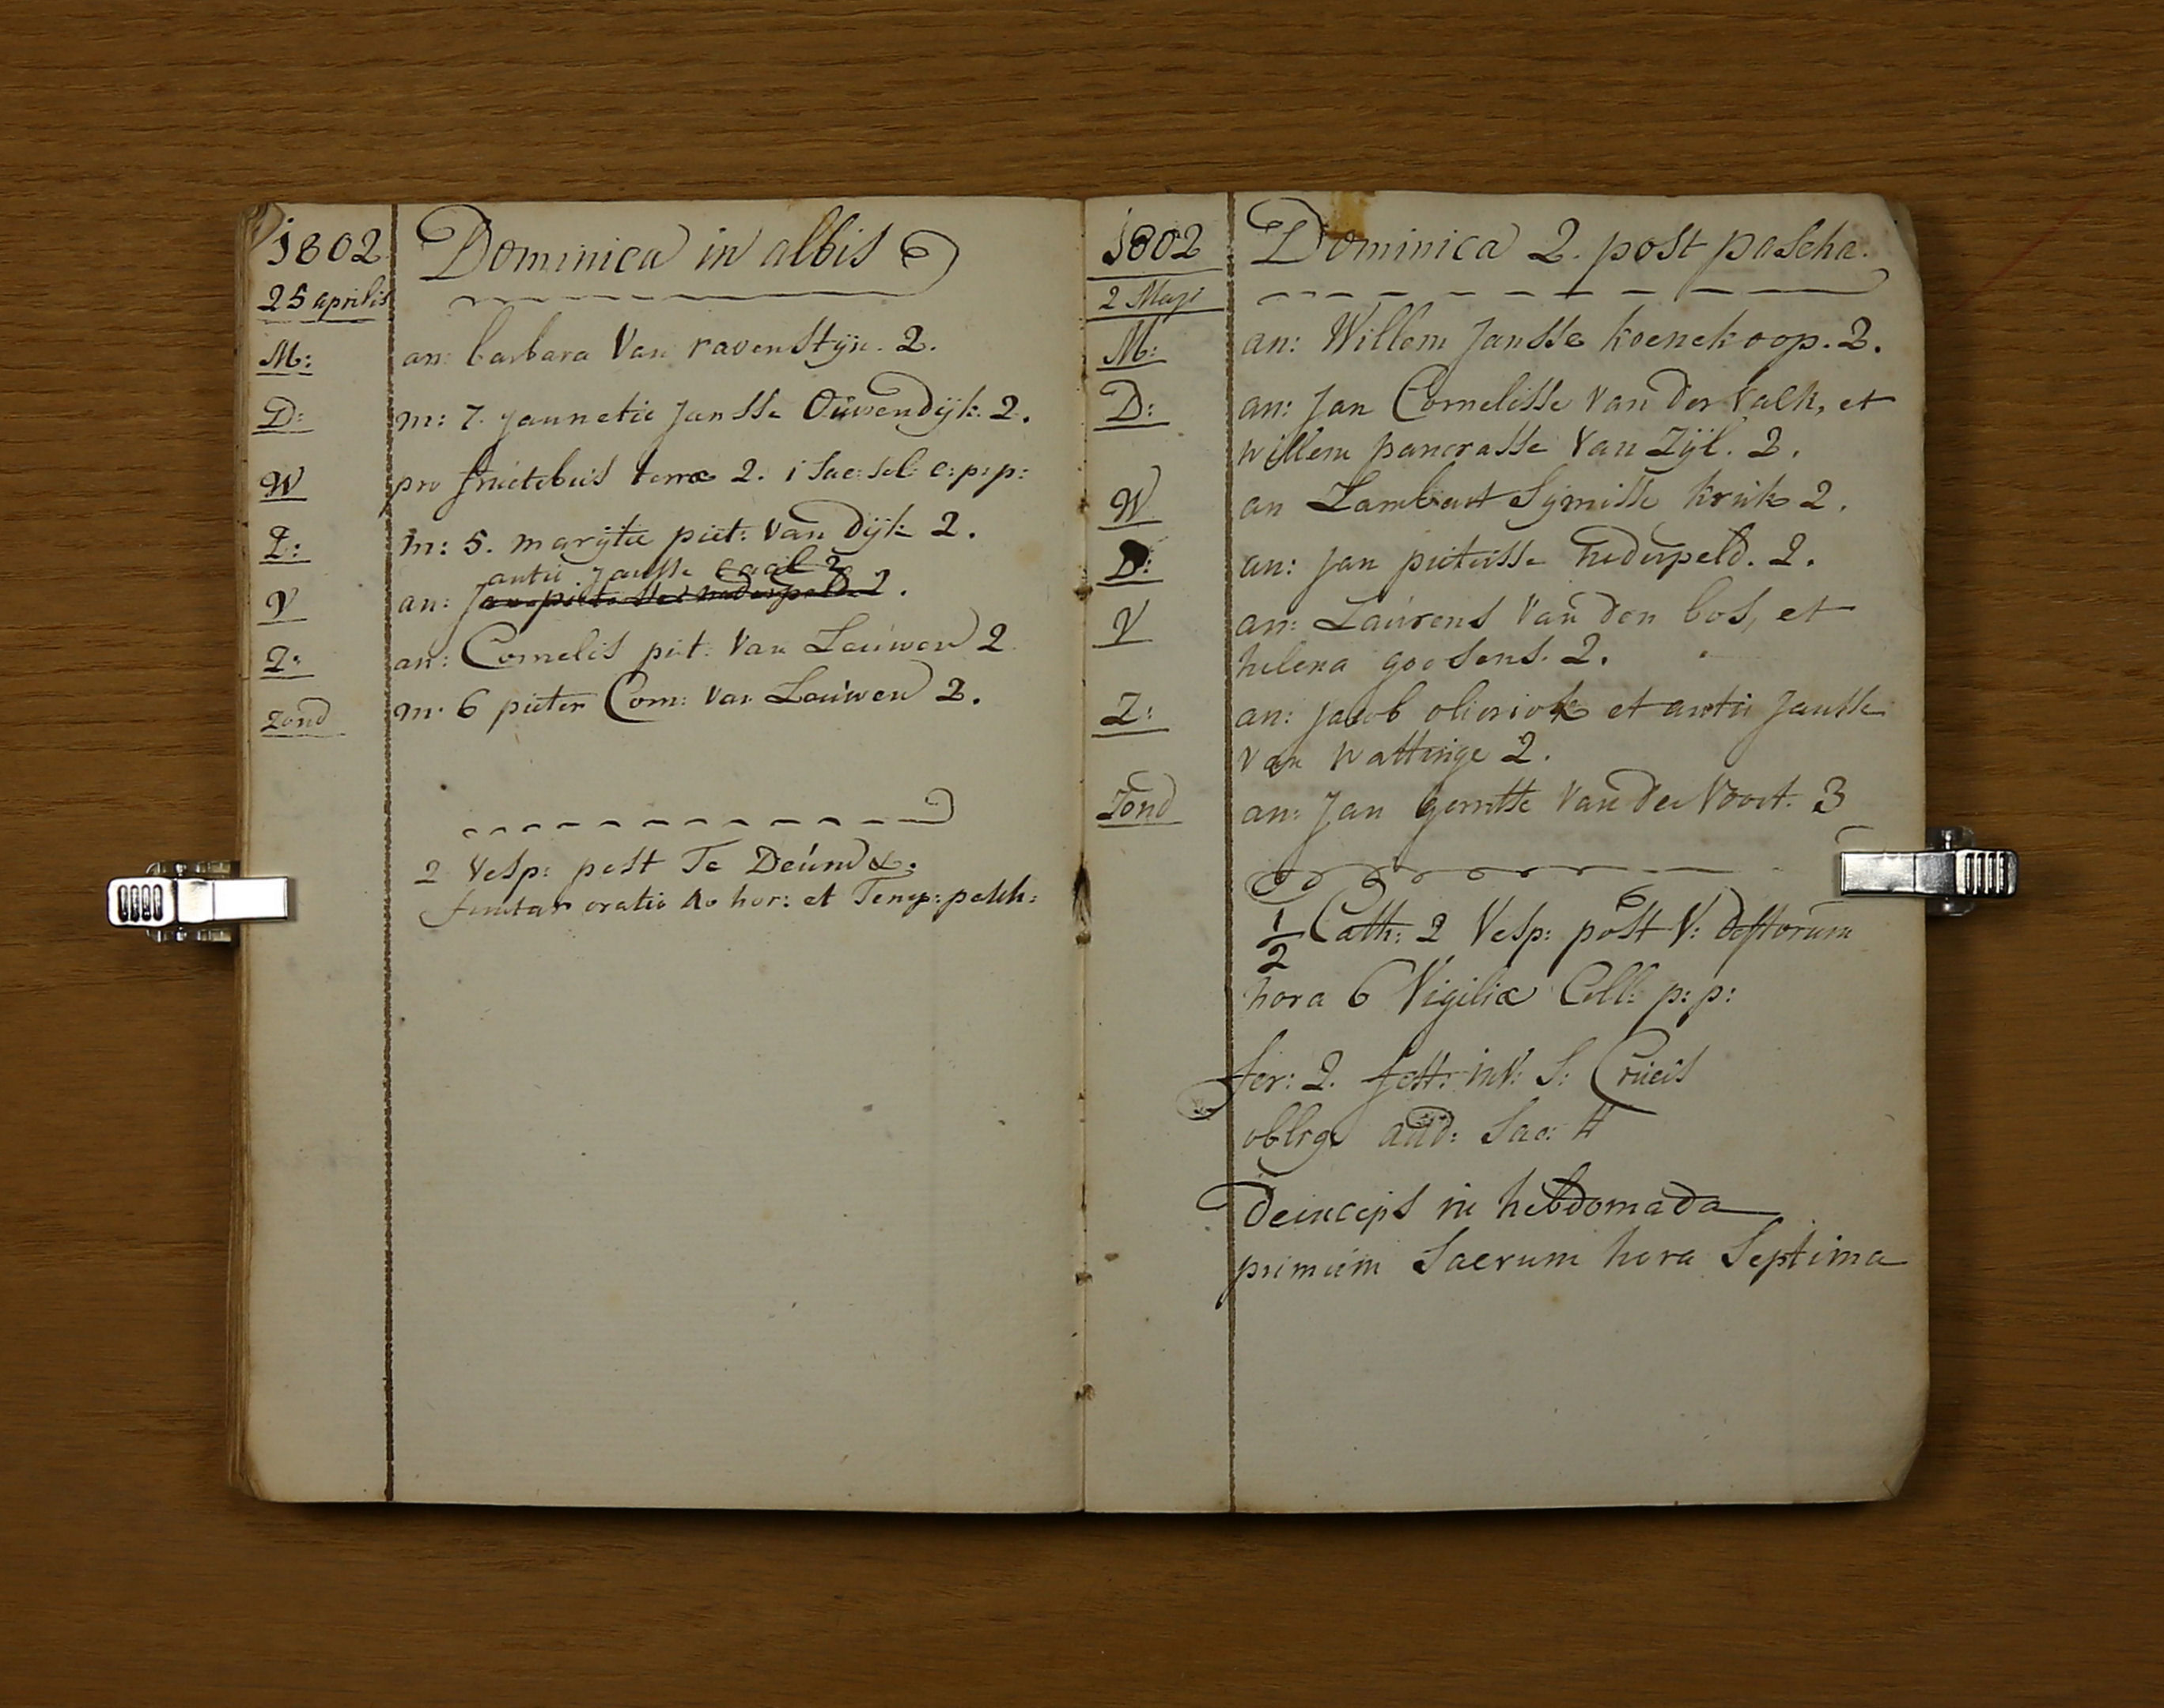 1802
25 aprilis
Dominica in albis
M: an: barbara Van ravenstyn. 2.
D: m: 7. jannetie Jansse Ouwendijk 2.
W pro fructibus terræ 2. i sac: sol: c: p: p:
Z: m: 5. marijtie piet: Van Dijk 2.
antie Jansse 2
V an: Jan pieterssee nederpeld 2.
Z: an: Cornelis piet: Van Leeuwen 2
zond m: 6 pieter Corn: Van Leeuwen 2.
2 Vesp: post Te Deum &.
oratio 40 hor: et Temp: pasch:
1802
2 Maji
Dominica 2. post pascha.
M: an: Willem Jansse koenekoop. 2.
D: an: Jan Cornelisse Van der Valk, et
willem pancrasse Van Zijl. 2.
W an Lambert Sijmisse kruk 2.
D: an: Jan pieterisse nederpeld. 2.
V an: Laurens Van den bos, et
helena goosens. 2.
Z: an: jacob et antie Jansse
van Wattinge 2.
Zond an: Jan gerritse Van der Voort. 3
1/2 Cath: 2 Vesp: post V: deftorum
hora 6 Vigiliæ Coll: p: p:
fer: 2. fest: inv: S: Crucis
oblig: aud: Sac: 4
Deinceps in hebdomada
primum Sacrum hora Septima